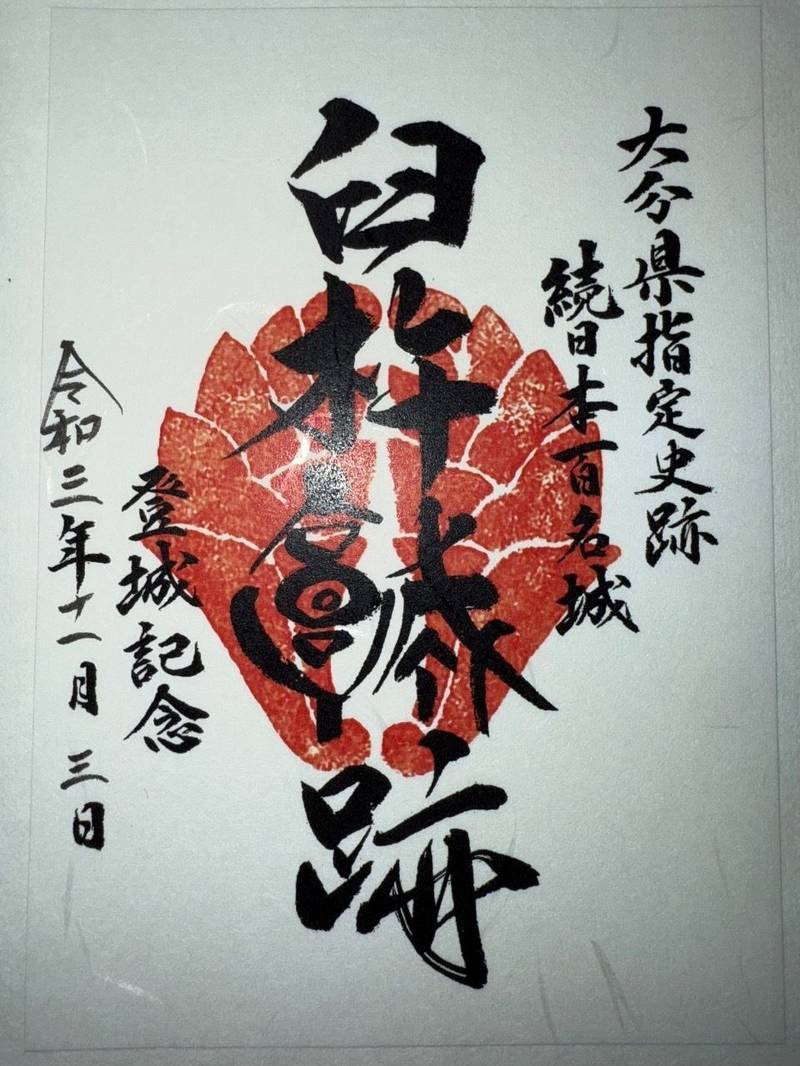 大分県指定史跡
続日本一百名城
臼杵城跡
登城記念
令和三年十一月三日